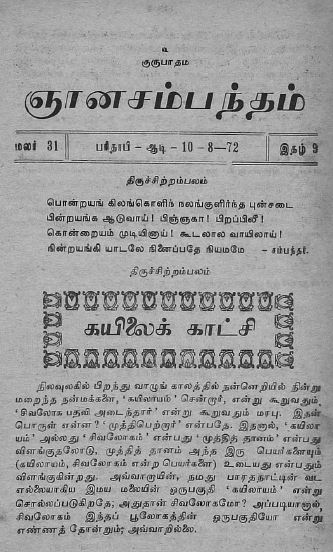 உ
குருபாதம
ஞானசம்பந்தம்
மலர் 31 பரிதாபி - ஆடி - 10 - 8 - 72 இதழ் 9
திருச்சிற்றம்பலம்
பொன்றயங் கிலங்கொளிந் நலங்குளிர்ந்த புன்சடை
பின்றயங்க ஆடுவாய்! பிஞ்ஞகா! பிறப்பிலீ!
கொன்றையம் முடியினாய்! கூடலால வாயிலாய்!
நின்றயங்கி யாடலே நினைப்பதே நியமமே - சம்பந்தர்.
திருச்சிற்றம்பலம்
கயிலைக் காட்சி
நிலவுலகில் பிறந்து வாழுங் காலத்தில் நன்னெறியில் நின்று
மறைந்த நன்மக்களை, 'கயிலாயம்' சென்றார், என்று கூறுவதும்,
'சிவலோக பதவி அடைந்தார்' என்று கூறுவதும் மரபு. இதன்
பொருள் என்ன? 'முத்திபெற்றார்' என்பதே. இதனால், 'கயிலா
யம்' அல்லது 'சிவலோகம்' என்பது 'முத்தித் தானம்' என்பது
விளங்குதலோடு, முத்தித் தானம் அந்த இரு பெயர்களையும்
(கயிலாயம், சிவலோகம் என்ற பெயர்களை) உடையது என்பதும்
விளங்குகின்றது. அவ்வாறாயின், நமது பாரதநாட்டின் வட
எல்லையாகிய இமய மலையின் ஒருபகுதி 'கயிலாயம்' என்று
சொல்லப்படுகிறதே; அதுதான் சிவலோகமோ? அப்படியானால்,
சிவலோகம் இந்தப் பூலோகத்தின் ஒருபகுதியோ என்று
எண்ணத் தோன்றும்; அவ்வாறில்லை.